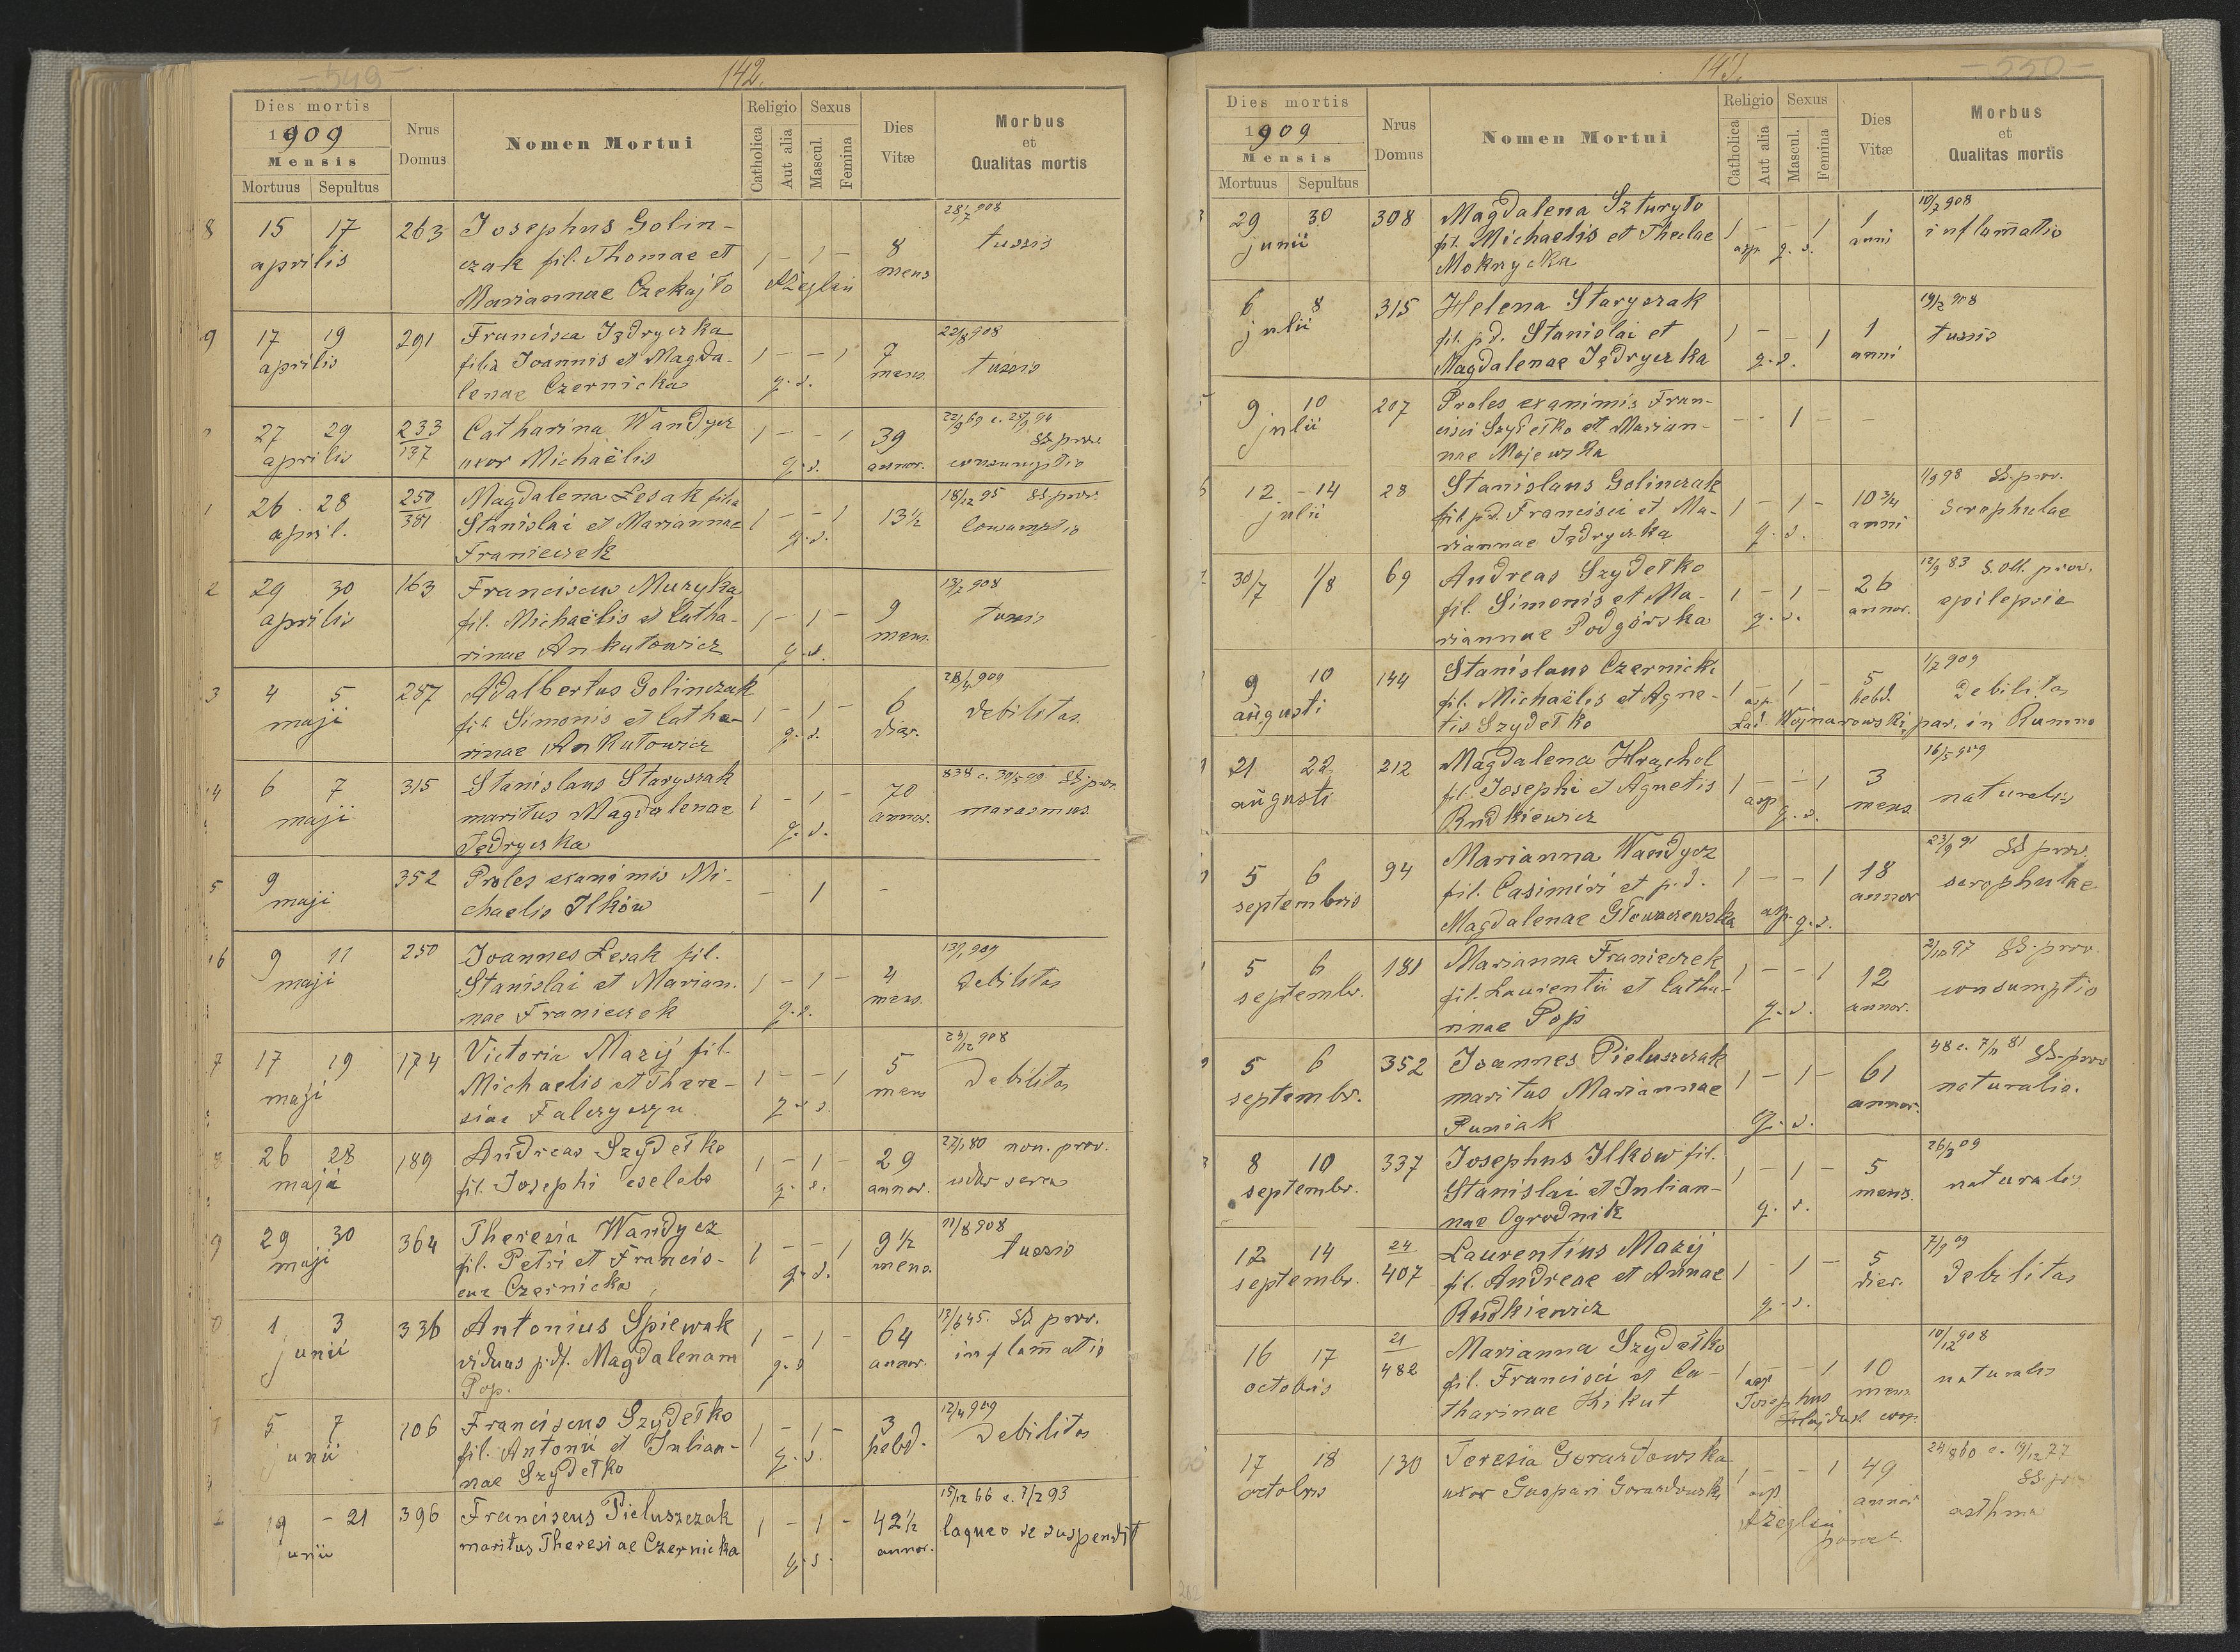 - 549 -
142.
Dies mortis
1909
Mensis
Mortuus Sepultus
Nrus Domus
Nomen Mortui
Religio
Catholica
Aut alia
Sexus
Mascul.
Femina
Dies Vitæ
Morbus
et
Qualitas mortis
8 15 17 263 Josephus Golin- 28/7 908
aprilis czak fil. Thomae et 1 - 1 - 8 tussis
Mariannae Czekajło Ażeglaú mens
9 17 19 291 Francisca Jędryczka 22/8 908
aprilis filia Joannis et Magda- 1 - - 1 7 tussis
lenae Czernicka q. s. mens.
27 29 233/137 Catharina Wandycz 1 - - 1 39 22/9 69 c. 25/9 94 SS. prov.
aprilis uxor Michaëlis q. s. annor. consumptio
1 26 28 250/381 Magdalena Lesak filia 18/12 95 SS. prov.
april. Stanislai et Mariannae 1 - - 1 13 1/2 Consumptio
Franiczek q. s.
2 29 30 163 Franciscus Muzyka 13/7 908
aprilis fil. Michaëlis et Catha- 1 - 1 - 9 tussis
rinae Ankutowicz q. s. mens.
3 4 5 287 Adalbertus Golinczak 28/4 909
maji fil. Simonis et Catha- 1 - 1 - 6 debilitas.
rinae Ankutowicz q. s. dier.
14 6 7 315 Stanislaus Staryszak 838 c. 30/5 99 SS. prov.
maji maritus Magdalenae 1 - 1 - 70 marasmus.
Jędryczka q. s. annor.
5 9 352 Proles exanimis Mi- - 1 -
maji chaelis Ilków
16 9 11 250 Joannes Lesak fil. 13/1 909
maji Stanislai et Marian- 1 - 1 - 4 debilitas
nae Franiczek q. s. mens.
7 17 19 174 Victoria Mazij fil. 24/12 908
maji Michaelis et There- 1 - - 1 5 Debilitas
siae Falczyszyn q. s. mens
8 26 28 189 Andreas Szydełko 1 - 1 - 29 27/1 80 non. prov.
maji fil. Josephi coelebs q. s. annor.
9 29 30 364 Theresia Wandycz 11/8 908
maji fil. Petri et Francis- 1 - - 1 9 1/2 tussis
cae Czernicka q. s. mens.
0 1 3 336 Antonius Spiewak 13/6 45. SS prov.
junii viduus p. df. Magdalenam 1 - 1 - 64 inflam̄atio
Pop. q. s annor.
5 7 106 Franciscus Szydełko 12/4 909
junii fil. Antonii et Julian- 1 - 1 - 3 debilitas
nae Szydełko q. s. hebd.
19 - 21 396 Franciscus Pieluszczak 15/12 66 c. 7/2 93
junii maritus Theresiae Czernicka 1 - 1 - 42 1/2 laqueo se suspendit
q. s. annor.
143.
- 550 -
Dies mortis
1909
Mensis
Mortuus Sepultus
Nrus Domus
Nomen Mortui
Religio
Catholica
Aut alia
Sexus
Mascul.
Femina
Dies Vitæ
Morbus
et
Qualitas mortis
29 30 308 Magdalena Szturyło 10/7 908
junii fil. Michaelis et Theclae 1 - - 1 1 inflam̄atio
Mokrycka asp. q. s. anni
6 8 315 Helena Staryszak 19/2 908
julii fil. p.d. Stanislai et 1 - - 1 1 tussis
Magdalenae Jędryczka q. s. anni
9 10 207 Proles exanimis Fran-
julii cisci Szydełko et Marian- - - 1 - -
nae Majewska
12 - 14 28 Stanislaus Golinczak 1/9 98 SS. prov.
julii fil. p.d. Francisci et Ma- 1 - 1 - 10 3/4 Scrophulae
riannae Jędryczka q. s. anni
30/7 1/8 69 Andreas Szydełko 12/9 83 S. Oll. prov.
fil. Simonis et Ma- 1 - 1 - 26 epilepsia
riannae Podgórska q. s. annor.
9 10 144 Stanislaus Czernicki 1/7 909
augusti fil. Michaëlis et Agne- 1 - 1 - 5 Debilitas
tis Szydełko asp. hebd.
Lad. Wojnarowski, par. in Rumno
21 22 212 Magdalena Hrąchol 16/5 909
augusti fil. Josephi et Agnetis 1 - - 1 3 naturalis
Rudkiewicz asp q. s. mens
5 6 94 Marianna Wandycz 23/9 91 SS prov.
septembris fil. Casimiri et p.d. 1 - - 1 18 scrophulae
Magdalenae Głowaczewska asp q. s. annor
5 6 181 Marianna Franiczek 2/10 97 SS. prov.
septembr. fil. Laurentii et Catha- 1 - - 1 12 consumptio
rinae Pop q. s. annor.
5 6 352 Joannes Pieluszczak 48 c. 7/11 81 SS. prov
septembr. maritus Mariannae 1 - 1 - 61 naturalis.
Puniak q. s. annor.
8 10 337 Josephus Ilków fil. 26/3 09
septembr. Stanislai et Julian- 1 - 1 - 5 naturalis
nae Ogrodnik q. s. mens.
12 14 24/407 Laurentius Mazij 7/9 09
septembr. fil. Andreae et Annae 1 - 1 - 5 Debilitas
Rudkiewicz q. s. dier.
16 17 21/482 Marianna Szydełko 10/12 908
octobris fil. Francisci et Ca- 1 - - 1 10 naturalis
tharinae Kikut asp mens
Josephus Hajduk coop.
17 18 130 Teresia Gorazdowska 24/8 60 c. 19/12 77
octobris uxor Gaspari Gorazdowski 1 - - 1 49 SS. prov
asp annor asthma
Ażeglaú